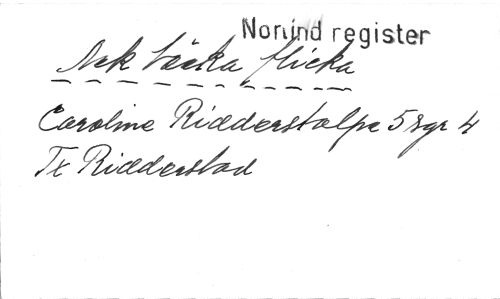 Nomind register
Ack Väcka flicka
Caroline Ridderstolpe 5 sgr 4
Tx Ridderstad